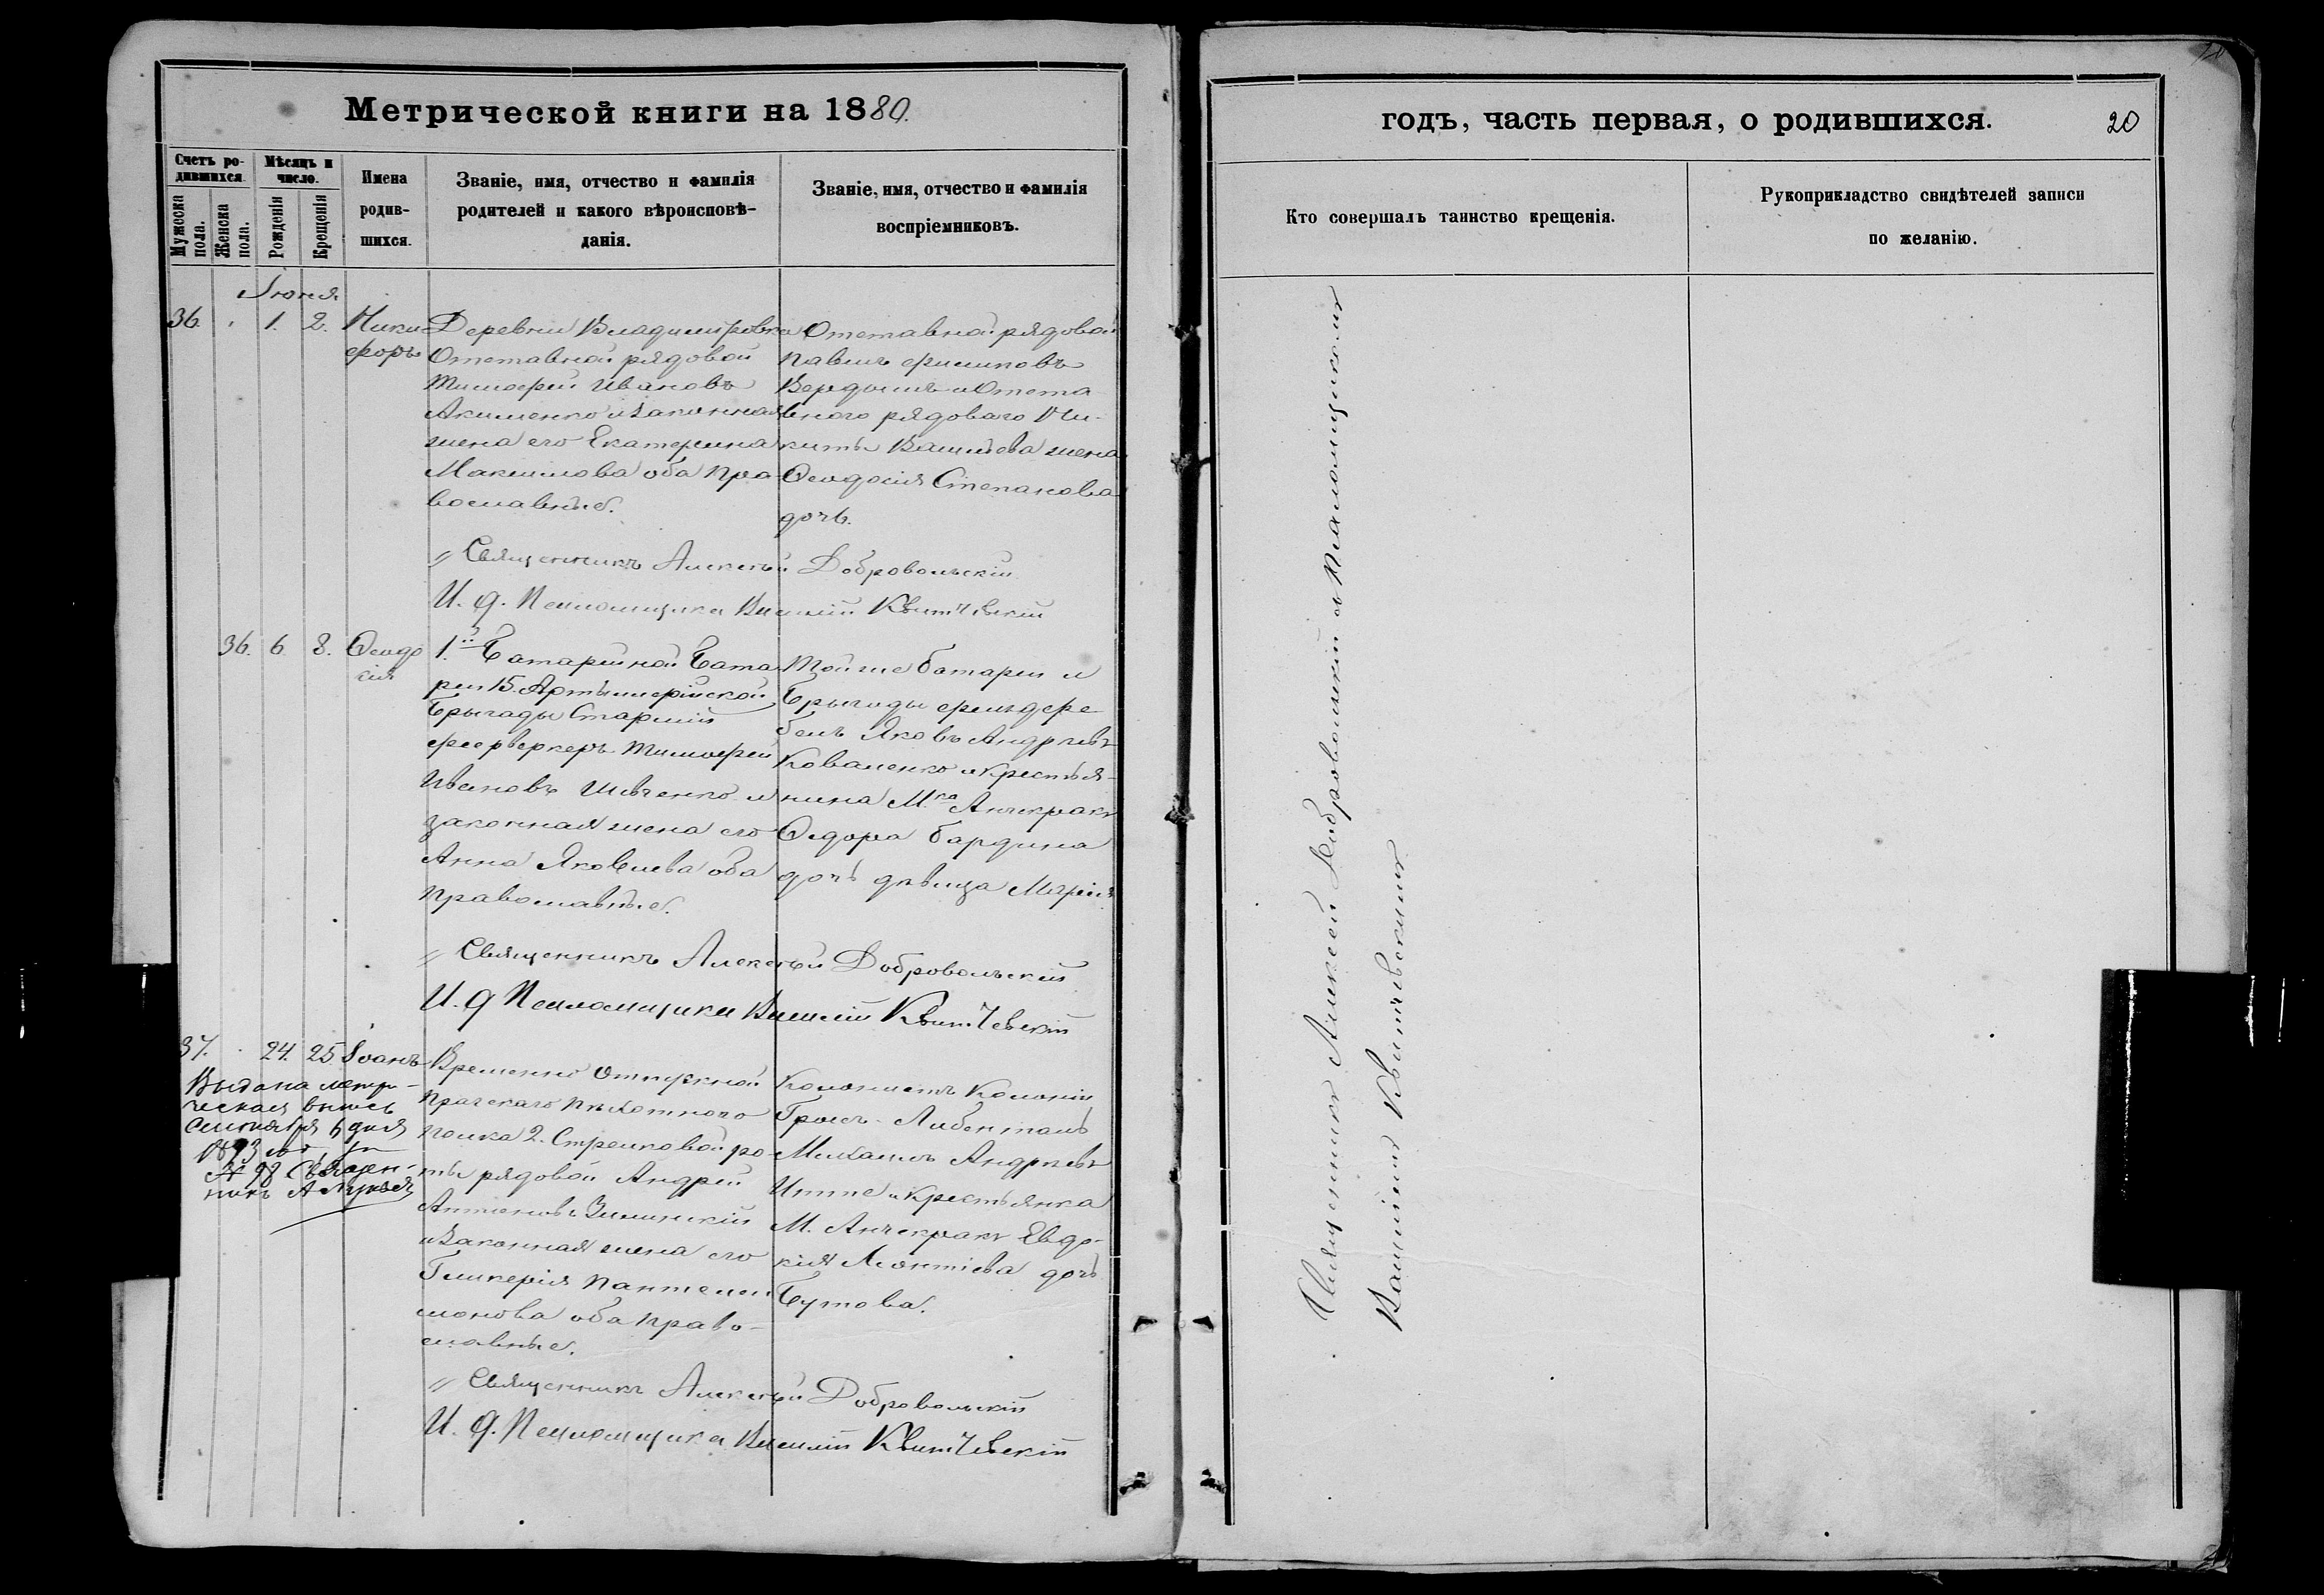 Метрической книги на 1880.
Счетъ ро-
дившихся.
Мѣсяцъ и
число.
Мужеска
пола.
Женска
пола.
Рожденія
Крещенія
Имена
родив-
шихся.
Званіе, имя, отчество и фамилія
родителей и какого вѣроисповѣ-
данія.
Званіе, имя, отчество и фамилія
воспріемниковъ.
Іюня.
36. 1. 2. Ники-
форъ
Деревни Владимировка
Отставной рядовой
Тимофей Ивановъ
Акименко и законная
жена его Екатерина
Максимова оба пра-
вославные.
Отставной рядовой
Павелъ Филиповъ
и Отста
вного рядоваго Ни-
киты Васильева жена
Ѳеодосія Степанова
дочь.
Священникъ Алексѣй Добровольскій
И. д. Псаломщика Василій Квитчевскій
36. 6. 8. Ѳеодо
сія
1.й Батарейной Бата-
реи 15. Артиллерійской
Бригады Старшій
фейерверкеръ Тимофей
Ивановъ Шевченко и
законная жена его
Анна Яковлева оба
православные.
Той же батареи и
Бригады фельдфе
бель Яковъ Андреевъ
Коваленко и крестья-
нина М.ка Анчекракъ
Ѳедора Бардина
дочь дѣвица Марія
Священникъ Алексѣй Добровольскій
И. д Псаломщика Василій Квитчевскій
37. 24. 25 Іоанъ
Выдана метри-
ческая выпись
Сентября 6 дня
1893
№ 98. Священ-
никъ А
Временно Отпускной
Пражскаго пѣхотнаго
полка 2. Стрелковой ро-
ты рядовой Андрей
Антоновъ Зилинскій
и законная жена его
Гликерія Пантелей
монова оба право-
славные.
Колонистъ Колоніи
Гросъ-Либенталь
Михаилъ Андреевъ
и крестьянка
М. Анчекракъ Евдо-
кія Леонтіева дочь
Бутова.
Священникъ Алексѣй Добровольскій
И. д. Псаломщика Василій Квитчевскій
годъ, часть первая, о родившихся.
20
Кто совершалъ таинство крещенія.
Рукоприкладство свидѣтелей записи
по желанію.
Священникъ Алексѣй Добровольскій съ Псаломщикомъ
Василіемъ Квитчевскимъ